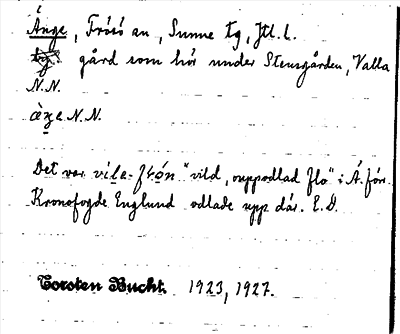 Ånge, Frösö sn, Sunne tg, Jtl. l.
by. gård som hör under Stensgården, Valla
N.N.
N.N.
Det var "vild, ouppodlad flo" i Å. förr.
Kronofogde Englund odlade upp där. E.Ö.
Torsten Bucht. 1923, 1927.